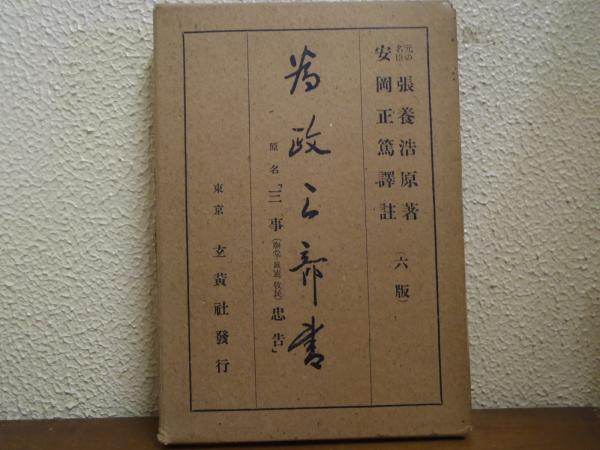 元の名臣 張養浩原著
安岡正篤譯註
（六版）
為政三部書
原名「三事（廟堂、風憲、牧民）忠告」
東京 玄黄社發行